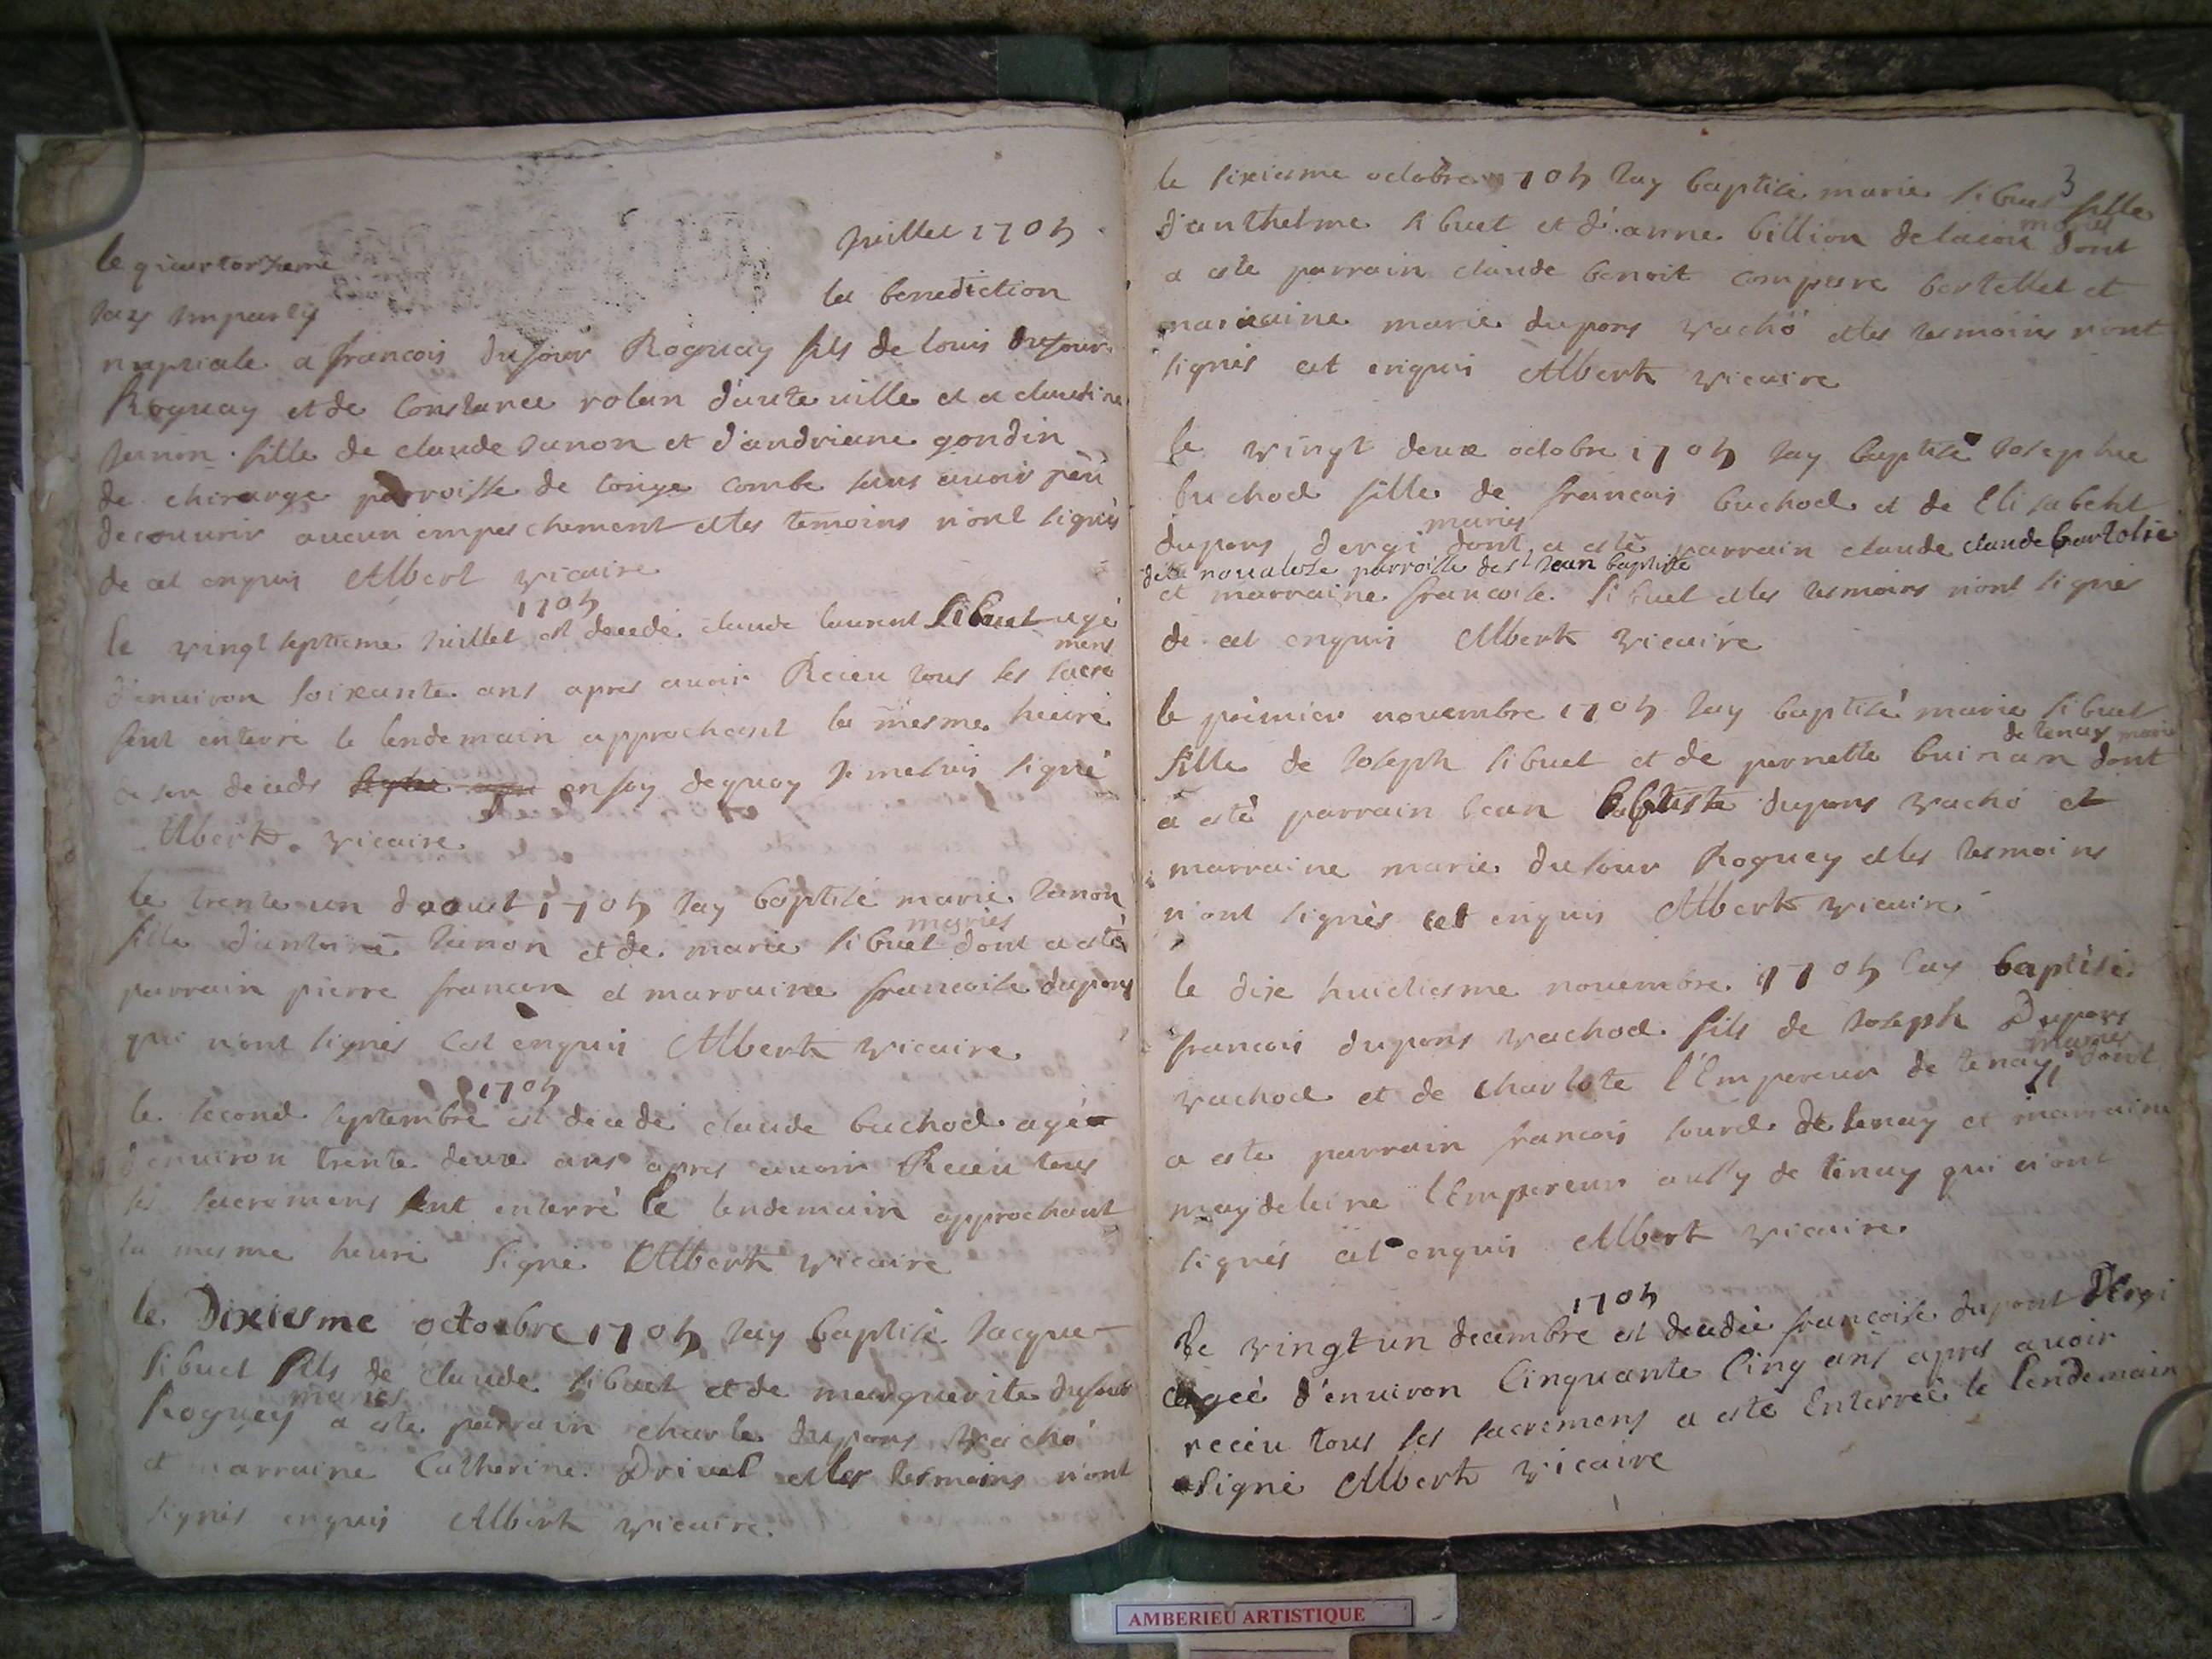 le quartorzieme juillet 1705
jay imparty la benediction
nuptiale a francois dufour Roguay fils de louis dufour
Roguay et de Constance rolan d'auteville et a claudine
junon fille de claude Junon et d'andriane gondin
de chirange parroisse de longe combe sans avoir peû
decouurir aucun empeschement et les temoins n'ont signés
de cet enquis Albert vicaire
1705
le vingt septieme Juillet est decede claude laurent sibuet agé
mens
d'enuiron soixante ans apres auoir Receu tous ses sacre
feut enterré le lendemain approchant la mesme heure
de son deceds en foy dequoy Je me suis signé
Albert vicaire
le trente un daoust 1705 Jay baptisé marie Junon
mariés
fille d'antoine Junon et de marie sibuet dont a esté
parrain pierre francon et marraine francoise dupons
qui n'ont signés cet enquis Albert vicaire
1705
le second septembre est decedé claude buchod agé
d'enuiron trente deux ans apres auoir Receu tous
ses sacremens feut enterré le lendemain approchant
la mesme heure Signé Albert vicaire
le Dixiesme octobre 1705 Jay baptisé Jacque
sibuet fils de claude sibuet et de marguerite dufour
mariés
Roguey a este parrain charle dupons vachó
et marraine Catherine Drivet et les tesmoins n'ont
signés enquis Albert vicaire
3
le sixiesme octobre 1705 Jay baptisé marie sibuet fille
mariés
d'anthelme sibuet et d'anne billion dont
a este parrain claude benoit compere bertellet et
marraine marie dupons vachó et les tesmoins n'ont
signés cet enquis Albert vicaire
le vingt deux octobre 1705 Jay baptisé Josephe
buchod fille de francois buchod et de Elisabeht
mariés
dupons dergi dont a esté parrain claude claude bartolié
parroisse de st Jean baptiste
et marraine francoise sibuet et les tesmoins n'ont signés
de cet enquis Albert vicaire
le premier nouembre 1705 Jay baptisé marie sibuet
de tenay mariés
fille de Joseph sibuet et de pernette buinan dont
a esté parrain Jean baptiste dupons vachó et
marraine marie dufour Roguey et les tesmoins
n'ont signés cet enquis Albert vicaire
le dixe huictiesme nouembre 1705 Jay baptisé
francois dupons vachod fils de Joseph Dupons
mariés
vachod et de charlote l'Empereur de tenay, dont
a este parrain francois sourd de tenay et marraine
maydeleine l'Empereur aussy de tenay qui n'ont
signés cet enquis Albert vicaire
1705
Le vingtun decembre est decedée francoise dupont Dergi
aagée d'enuiron Cinquante Cinq ans apres auoir
receu tous ses sacremens a esté Enterrée le lendemain
signé Albert vicaire
AMBERIEU ARTISTIQUE